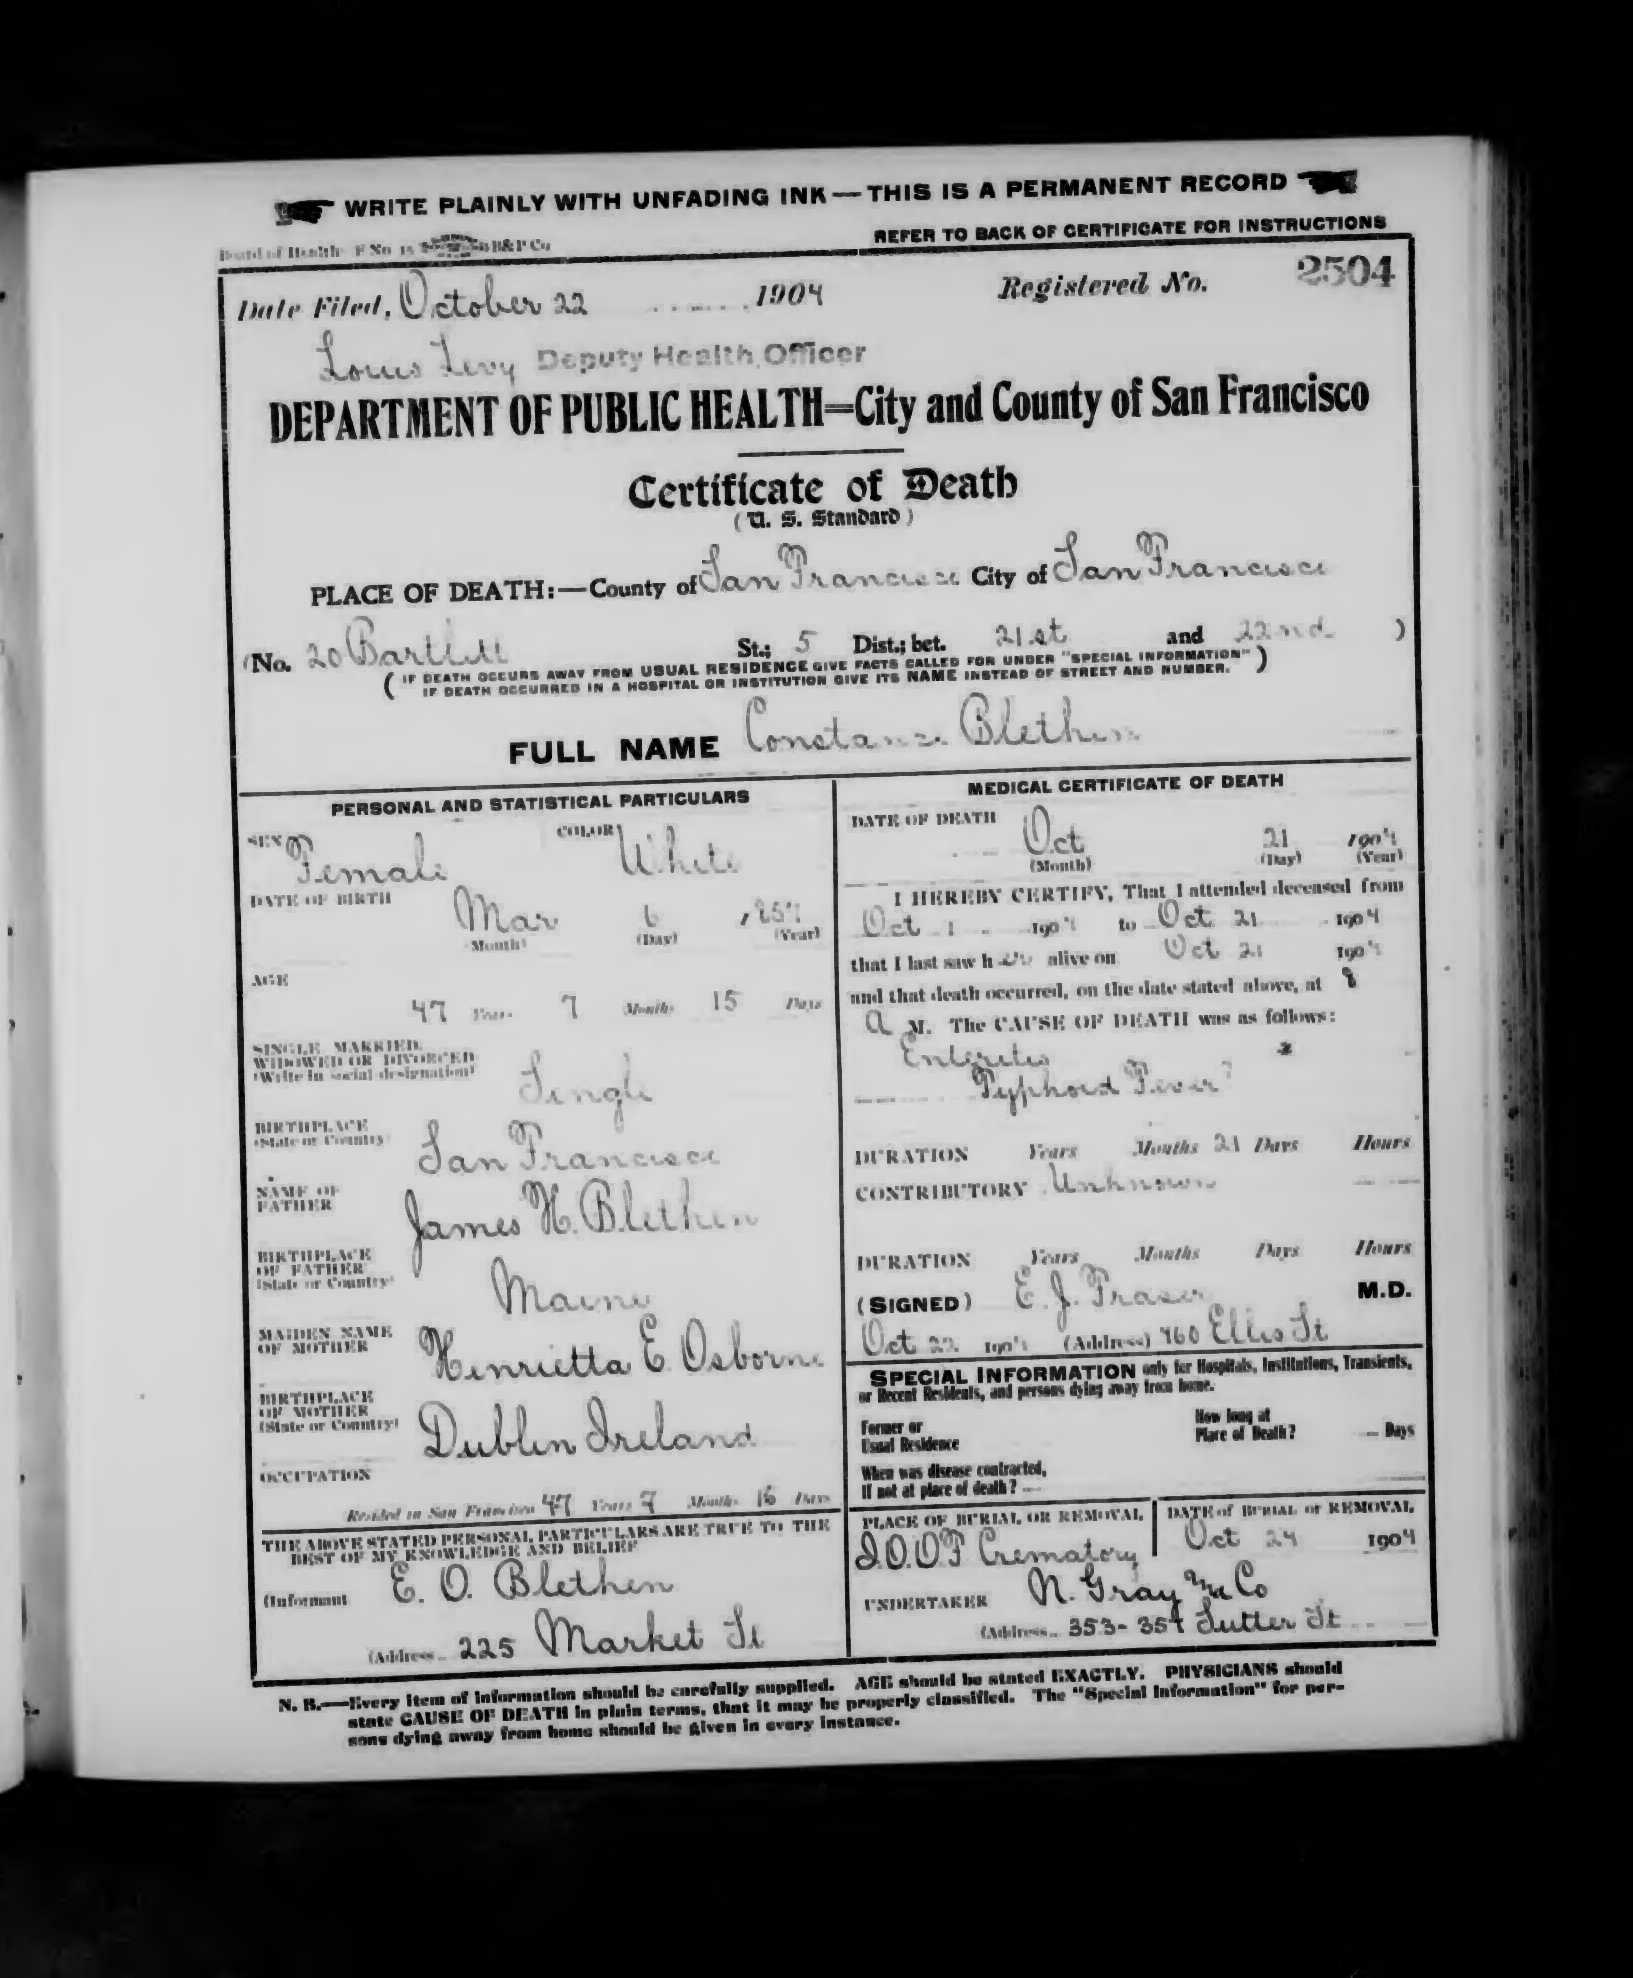 WRITE PLAINLY WITH UNFADING INK — THIS IS A PERMANENT RECORD
Board of Health F No 15 B&P Co
REFER TO BACK OF CERTIFICATE FOR INSTRUCTIONS
Date Filed, October 22 1904 Registered No. 2504
Louis Levy Deputy Health Officer
DEPARTMENT OF PUBLIC HEALTH=City and County of San Francisco
Certificate of Death
(U. S. Standard)
PLACE OF DEATH:—County of San Francisco City of San Francisco
(No. 20 Bartlett St.; 5 Dist.; bet. 21st and 22nd )
( IF DEATH OCCURS AWAY FROM USUAL RESIDENCE GIVE FACTS CALLED FOR UNDER "SPECIAL INFORMATION" )
IF DEATH OCCURRED IN A HOSPITAL OR INSTITUTION GIVE ITS NAME INSTEAD OF STREET AND NUMBER.
FULL NAME Constance Blethen
PERSONAL AND STATISTICAL PARTICULARS
SEX Female COLOR White
DATE OF BIRTH
Mar 6 1857
(Month) (Day) (Year)
AGE
47 Years 7 Months 15 Days
SINGLE, MARRIED,
WIDOWED OR DIVORCED
(Write in social designation)
Single
BIRTHPLACE
(State or Country)
San Francisco
NAME OF
FATHER
James H. Blethen
BIRTHPLACE
OF FATHER
(State or Country)
Maine
MAIDEN NAME
OF MOTHER
Henrietta E. Osborne
BIRTHPLACE
OF MOTHER
(State or Country)
Dublin Ireland
OCCUPATION
Resided in San Francisco 47 Years 7 Months 15 Days
THE ABOVE STATED PERSONAL PARTICULARS ARE TRUE TO THE
BEST OF MY KNOWLEDGE AND BELIEF
(Informant E. O. Blethen
(Address 225 Market St
MEDICAL CERTIFICATE OF DEATH
DATE OF DEATH
Oct 21 1904
(Month) (Day) (Year)
I HEREBY CERTIFY, That I attended deceased from
Oct 1 1904 to Oct 21 1904
that I last saw her alive on Oct 21 1904
and that death occurred, on the date stated above, at 8
A M. The CAUSE OF DEATH was as follows:
Enteritis
Typhoid Fever?
DURATION Years Months 21 Days Hours
CONTRIBUTORY Unknown
DURATION Years Months Days Hours
(SIGNED) E. J. Fraser M.D.
Oct 22 1904 (Address) 460 Ellis St
SPECIAL INFORMATION only for Hospitals, Institutions, Transients,
or Recent Residents, and persons dying away from home.
Former or
Usual Residence
How long at
Place of Death? Days
When was disease contracted,
If not at place of death?
PLACE OF BURIAL OR REMOVAL
I.O.O.F Crematory
DATE of BURIAL or REMOVAL
Oct 24 1904
UNDERTAKER N. Gray and Co
(Address 353-357 Sutter St
N. B.—Every item of information should be carefully supplied. AGE should be stated EXACTLY. PHYSICIANS should
state CAUSE OF DEATH in plain terms, that it may be properly classified. The "Special Information" for per-
sons dying away from home should be given in every instance.